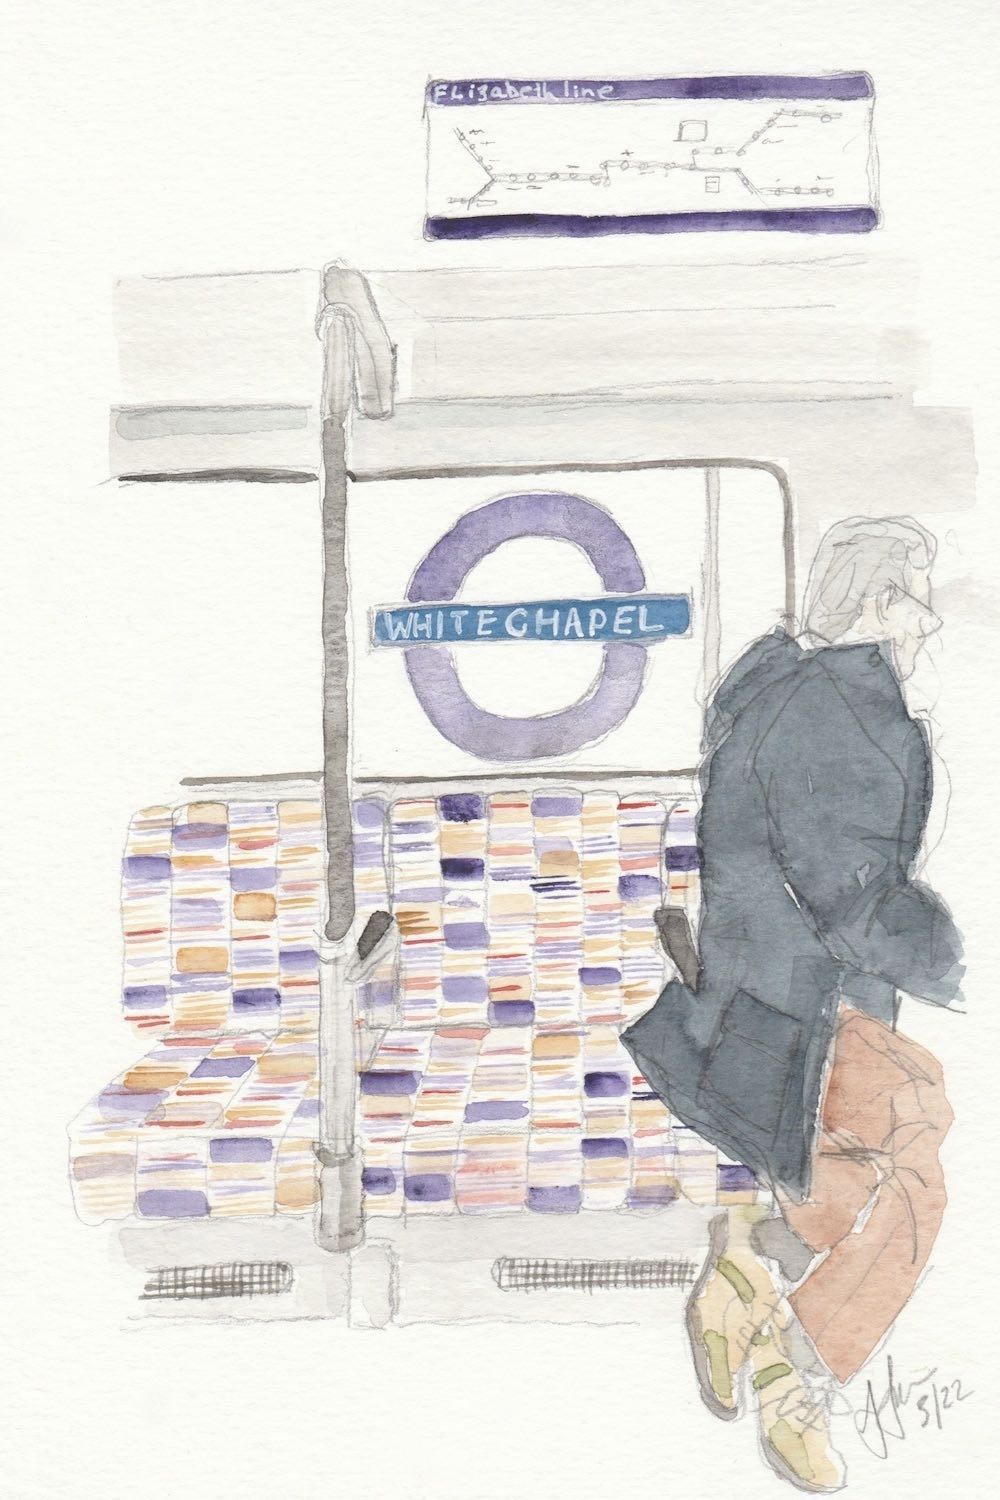 Elizabeth line
WHITECHAPEL
5/22